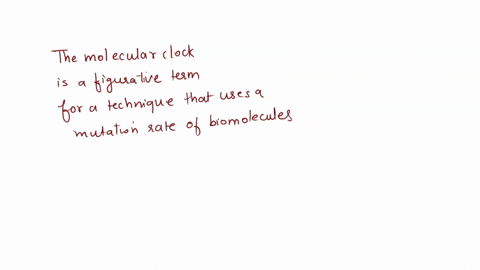 The molecular clock
is a figurative term
for a technique that uses a
mutation rate of biomolecules